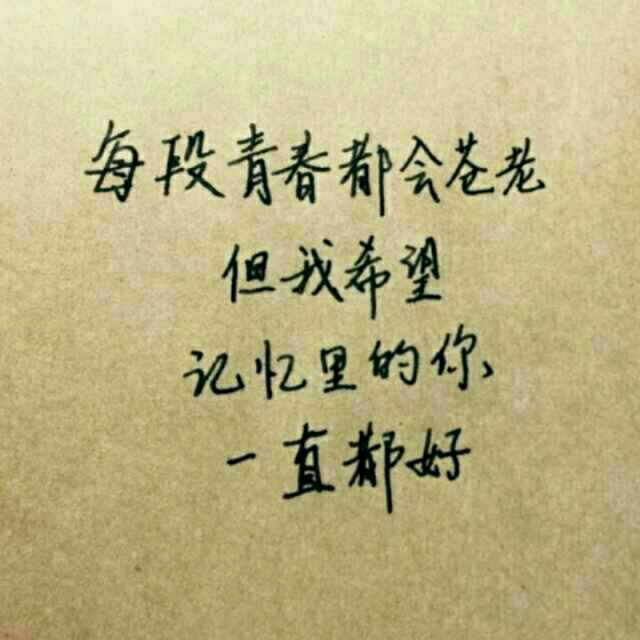 每段青春都会苍老
但我希望
记忆里的你
一直都好